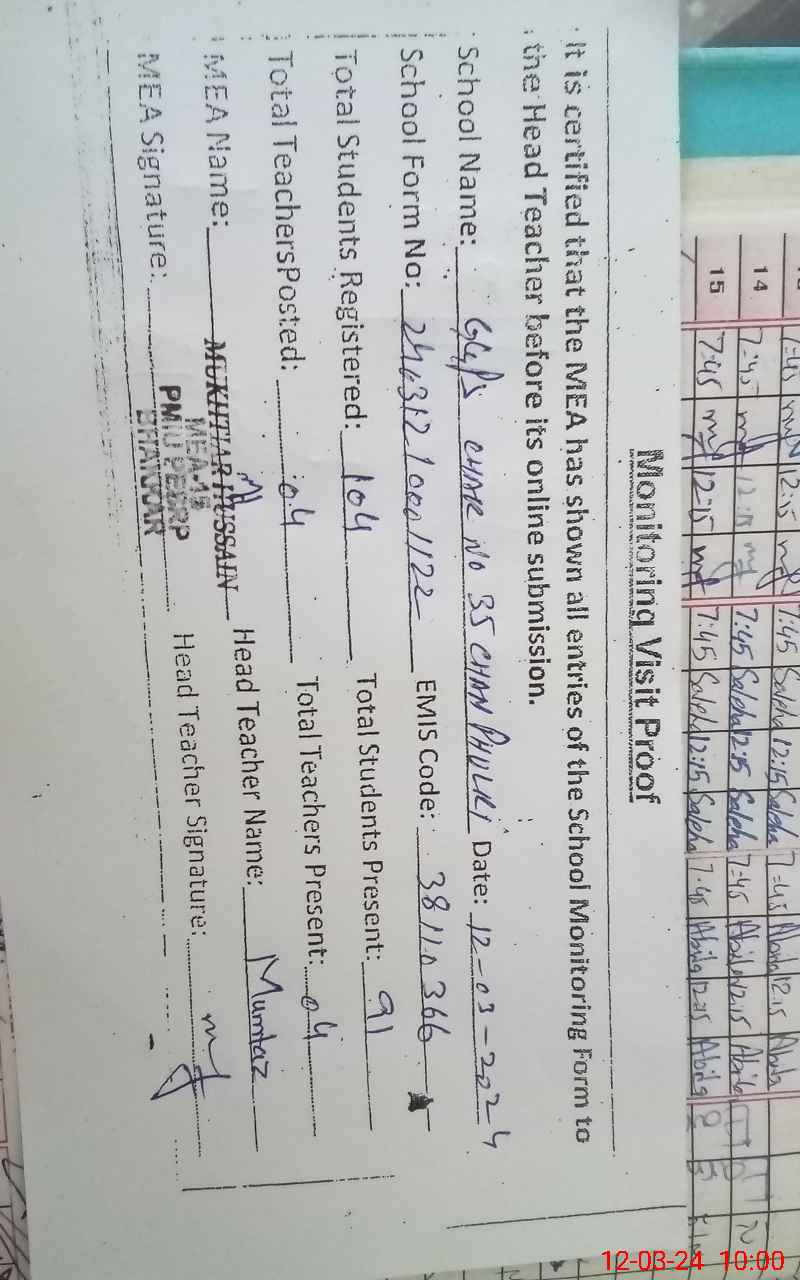 Monitoring Visit Proof
It is certified that the MEA has shown all entries of the School Monitoring Form to
the Head Teacher before its online submission.
School Name: GGPS CHAK NO 35 CHAN PHULKI Date: 12-03-2024
School Form No: EMIS Code: 38110366
Total Students Registered: 104 Total Students Present: 91
Total TeachersPosted: 04 Total Teachers Present: 04
MEA Name: MUKHTIAR HUSSAIN Head Teacher Name: Mumtaz
MEA-15
MEA Signature: Head Teacher Signature:
PMIU PESRP
BHAKKAR
7:45 12:15 7:45 Saleha 12:15 Saleha 7:45 Abila 12:15 Abila
14 7:45 12:15 7:45 Saleha 12:15 Saleha 7:45 Abila 12:15 Abila
15 7:45 12:15 7:45 Saleha 12:15 Saleha 7:45 Abila 12:15 Abila
12-03-24 10:00